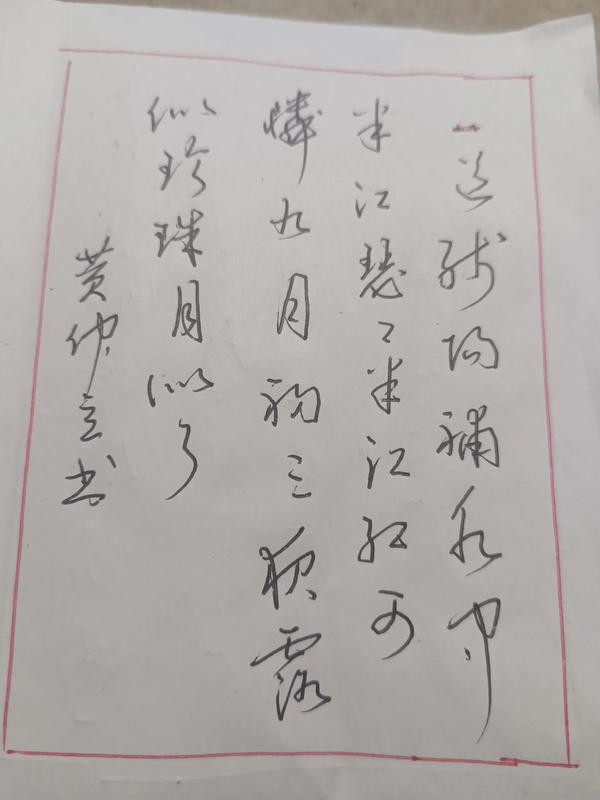 一道残阳補水中
半江瑟々半江红可
憐九月初三夜露
似珍珠月似弓
黄仲立书